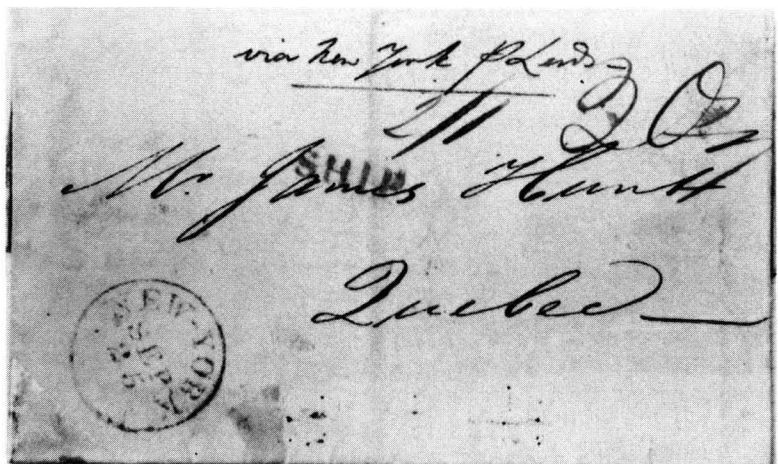 via New York P Leeds
2/1
SHIP
Mr. James Huntt
Quebec
NEW-YORK
SEP
25